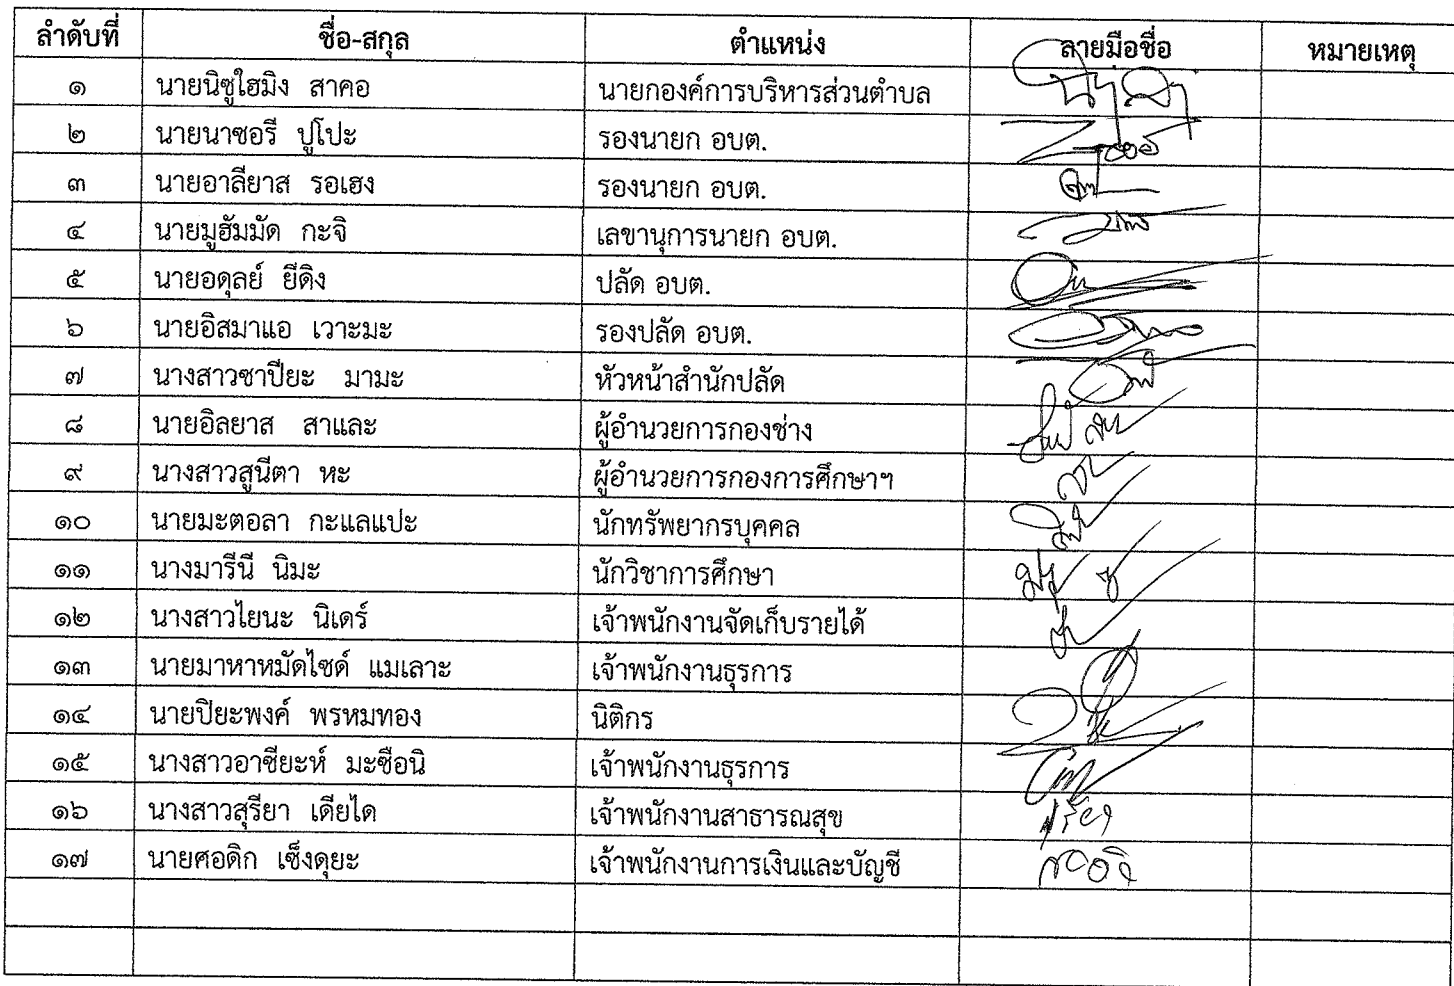 ลำดับที่ ชื่อ-สกุล ตำแหน่ง ลายมือชื่อ หมายเหตุ
๑ นายนิซูไฮมิง สาคอ นายกองค์การบริหารส่วนตำบล
๒ นายนาซอรี ปูโปะ รองนายก อบต.
๓ นายอาลียาส รอเฮง รองนายก อบต.
๔ นายมูฮัมมัด กะจิ เลขานุการนายก อบต.
๕ นายอดุลย์ ยีดิง ปลัด อบต.
๖ นายอิสมาแอ เวาะมะ รองปลัด อบต.
๗ นางสาวซาปียะ มามะ หัวหน้าสำนักปลัด
๘ นายอิลยาส สาและ ผู้อำนวยการกองช่าง
๙ นางสาวสูนีตา หะ ผู้อำนวยการกองการศึกษาฯ
๑๐ นายมะตอลา กะแลแปะ นักทรัพยากรบุคคล
๑๑ นางมารีนี นิมะ นักวิชาการศึกษา
๑๒ นางสาวไยนะ นิเดร์ เจ้าพนักงานจัดเก็บรายได้
๑๓ นายมาหาหมัดไซด์ แมเลาะ เจ้าพนักงานธุรการ
๑๔ นายปิยะพงค์ พรหมทอง นิติกร
๑๕ นางสาวอาซียะห์ มะซือนิ เจ้าพนักงานธุรการ
๑๖ นางสาวสุรียา เดียได เจ้าพนักงานสาธารณสุข
๑๗ นายศอดิก เซ็งดุยะ เจ้าพนักงานการเงินและบัญชี